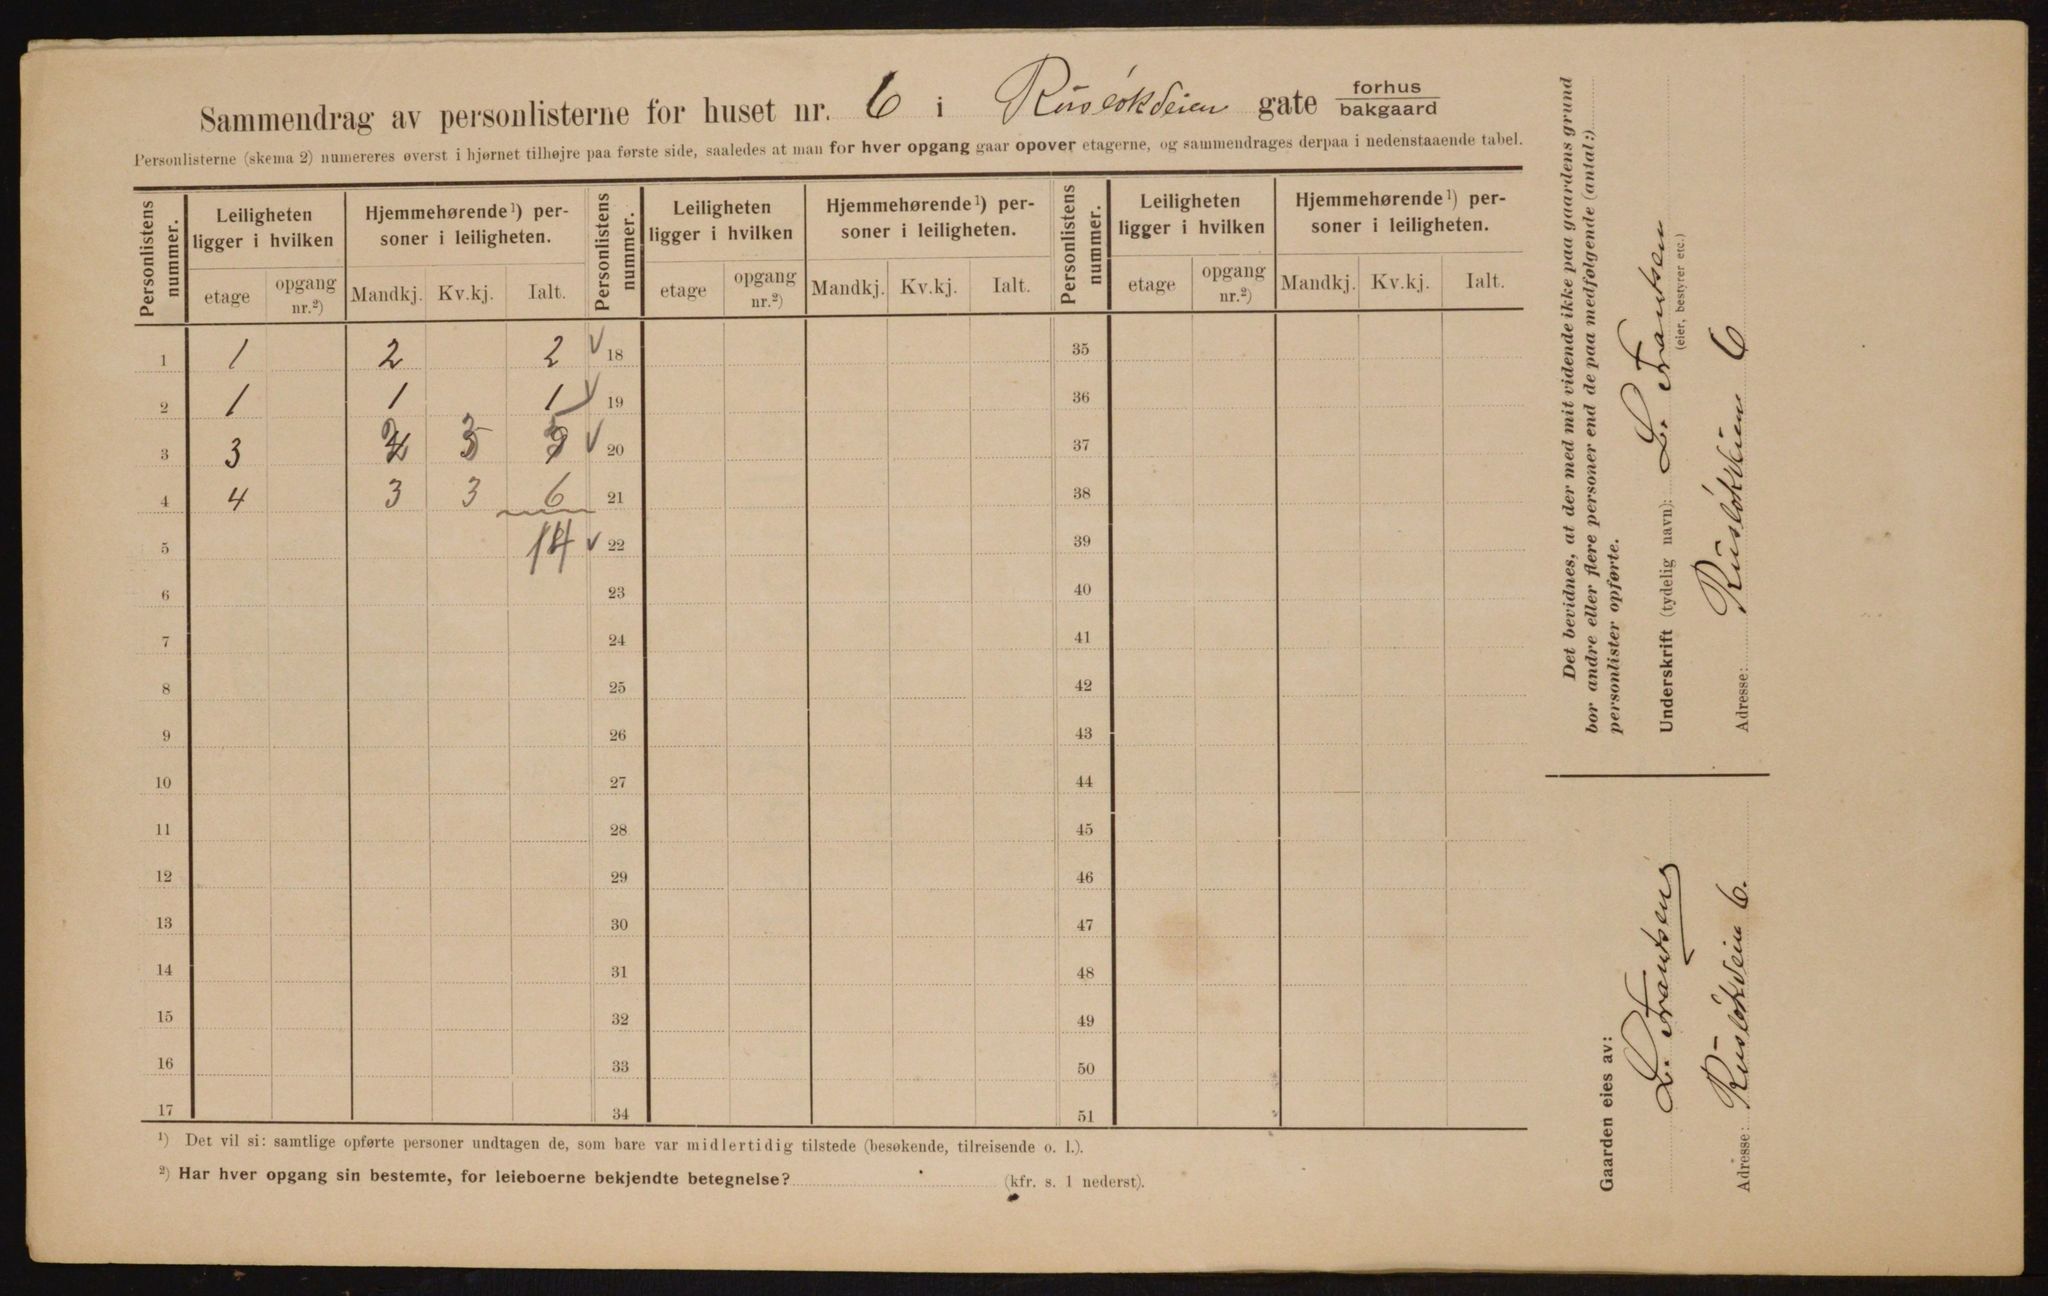 Sammendrag av personlisterne for huset nr. 6 i Ruseløkveien gate forhus bakgaard
Personlisterne (skema 2) numereres øverst i hjørnet tilhøjre paa første side, saaledes at man for hver opgang gaar opover etagerne, og sammendrages derpaa i nedenstaaende tabel.
Personlistens nummer. Leiligheten ligger i hvilken Hjemmehørende ¹) personer i leiligheten. Personlistens nummer. Leiligheten ligger i hvilken Hjemmehørende ¹) personer i leiligheten. Personlistens nummer. Leiligheten ligger i hvilken Hjemmehørende ¹) personer i leiligheten.
etage opgang nr.²) Mandkj. Kv.kj. Ialt. etage opgang nr.²) Mandkj. Kv.kj. Ialt. etage opgang nr.²) Mandkj. Kv.kj. Ialt.
1 1 2 2 √ 18 35
2 1 1 1 √ 19 36
3 3 2 3 5 √ 20 37
4 4 3 3 6 21 38
5 14 √ 22 39
6 23 40
7 24 41
8 25 42
9 26 43
10 27 44
11 28 45
12 29 46
13 30 47
14 31 48
15 32 49
16 33 50
17 34 51
¹) Det vil si: samtlige opførte personer undtagen de, som bare var midlertidig tilstede (besøkende, tilreisende o. l.).
²) Har hver opgang sin bestemte, for leieboerne bekjendte betegnelse? (kfr. s. 1 nederst).
Det bevidnes, at der med mit vidende ikke paa gaardens grund
bor andre eller flere personer end de paa medfølgende (antal:)
personlister opførte.
Underskrift (tydelig navn): L. Frantsen
(eier, bestyrer etc.)
Adresse: Rusløkveien 6
Gaarden eies av:
L. Frantsen
Adresse: Rusløkveien 6.